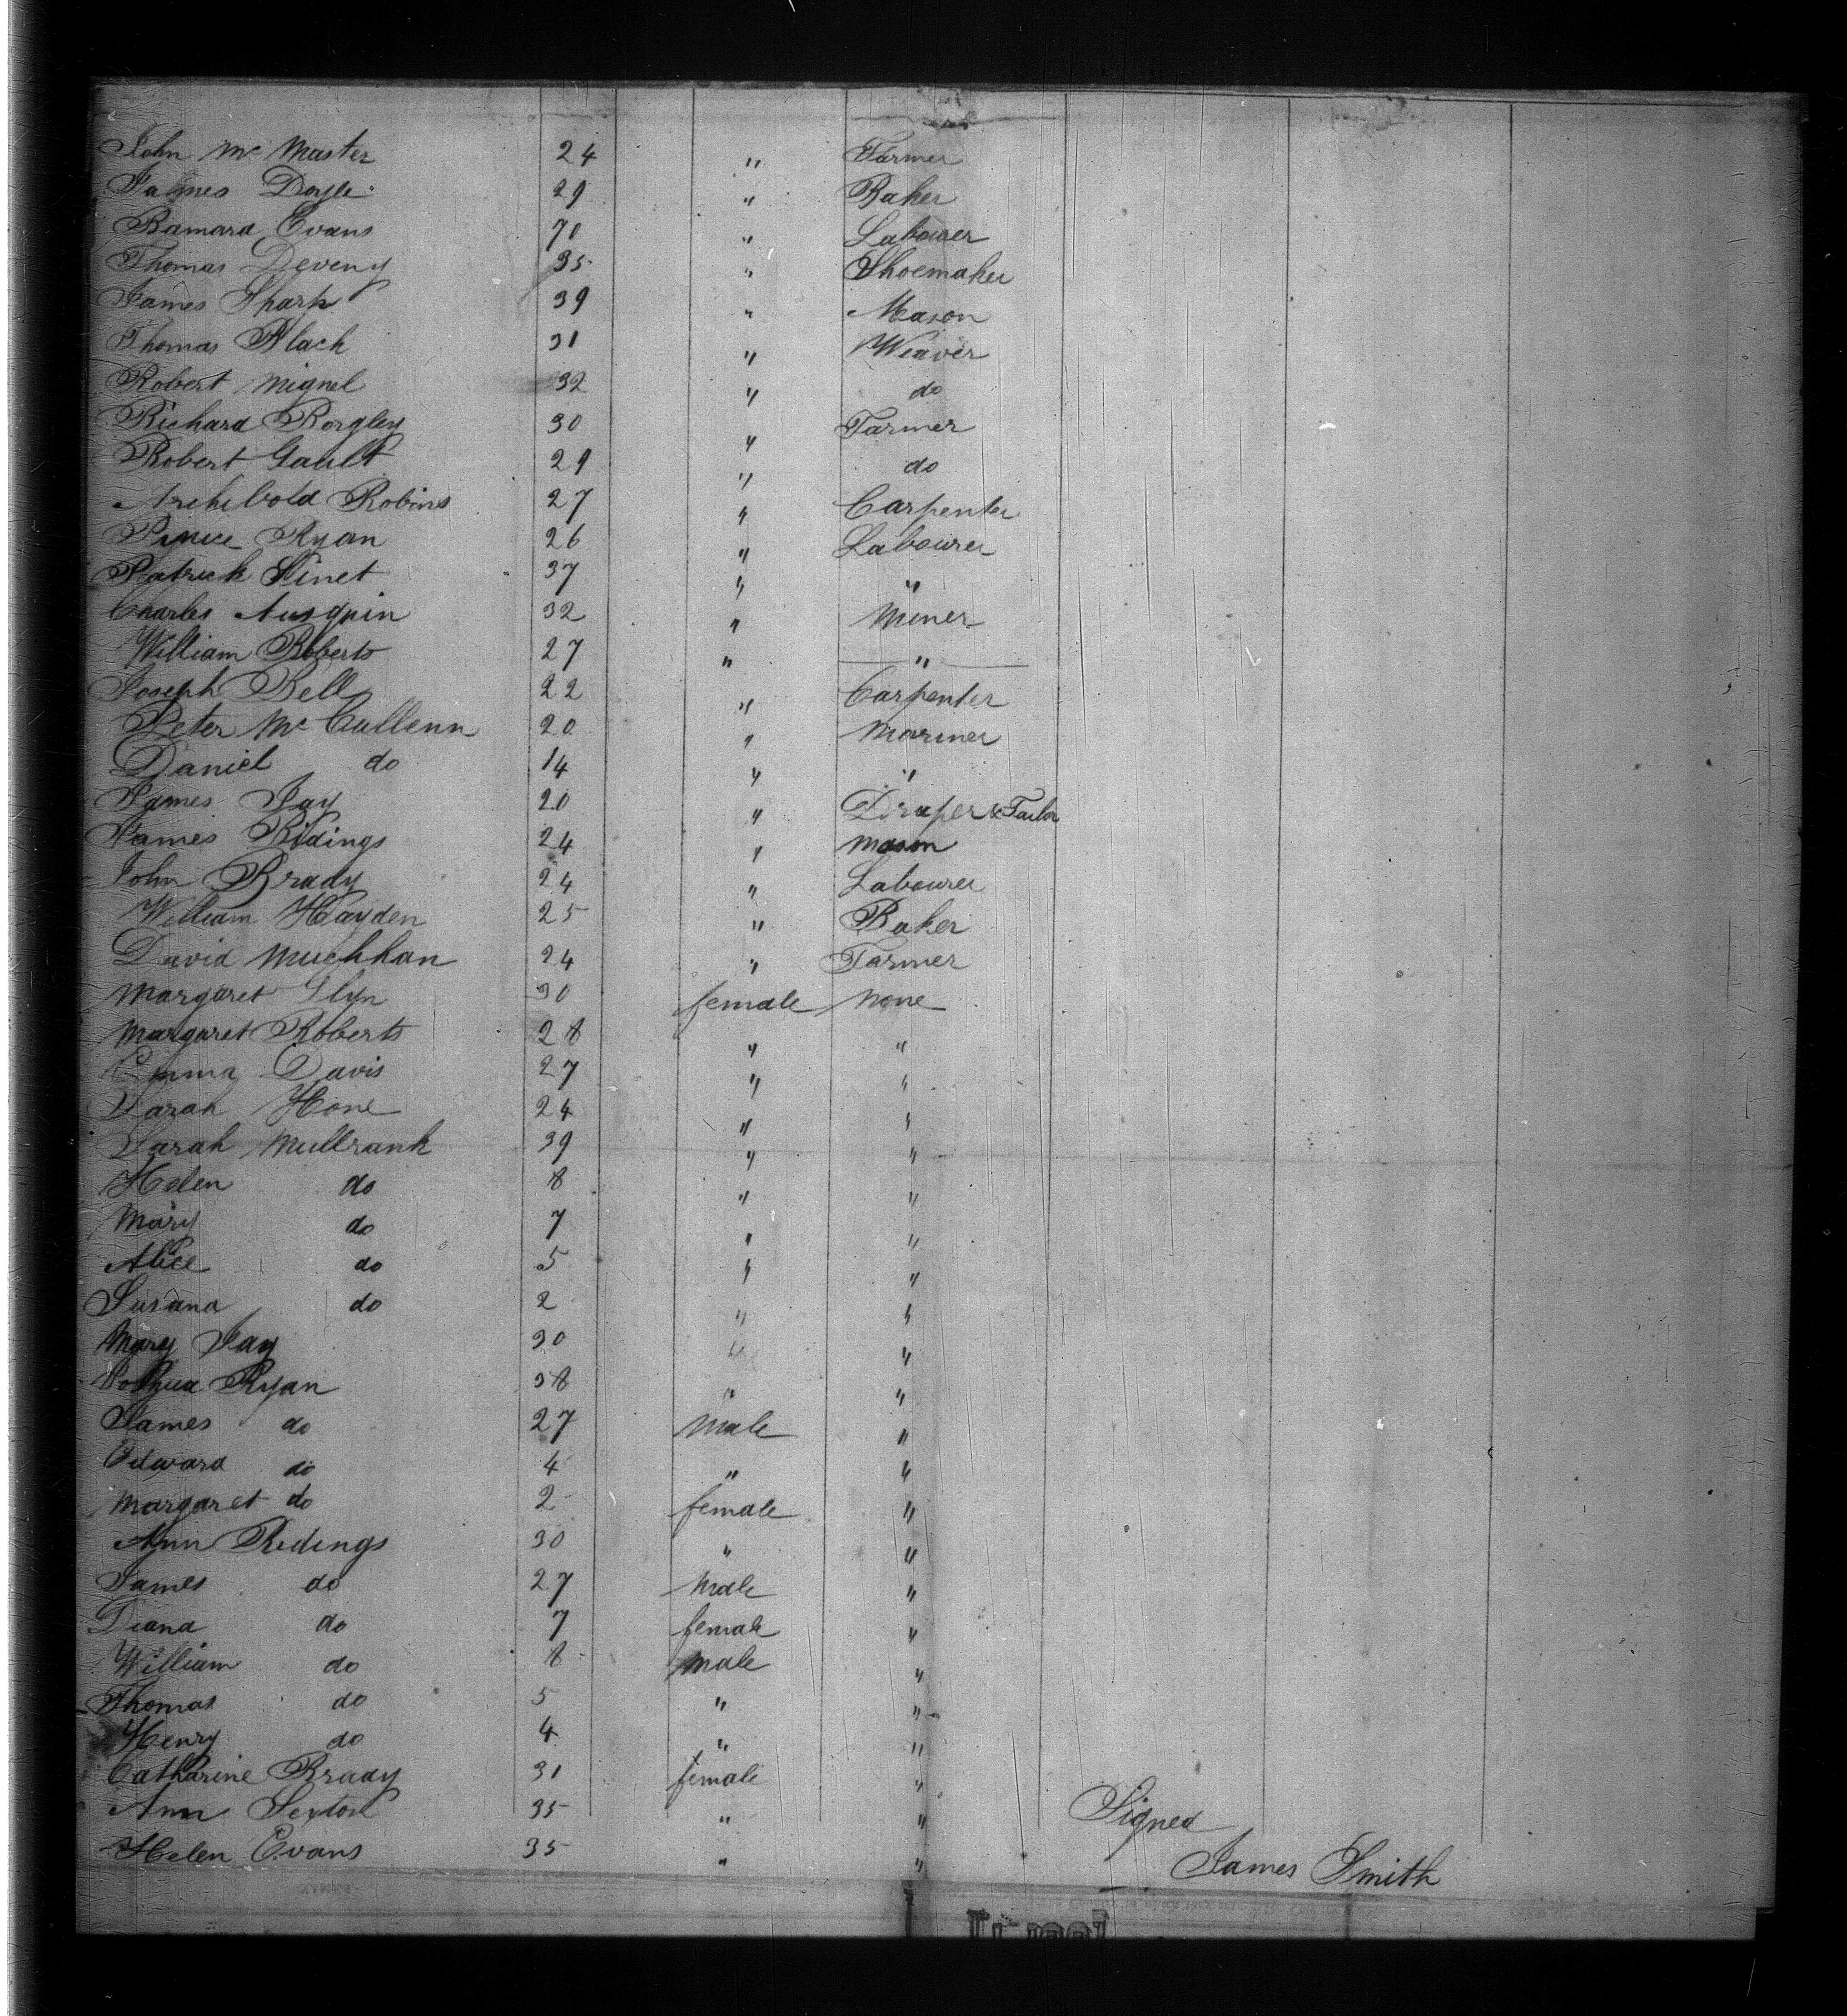 John Mc Master 24 " Farmer
James Doyle 29 " Baker
Barnard Evans 70 " Labourer
Thomas Deveny 35 " Shoemaker
James Sharp 39 " Mason
Thomas Black 31 " Weaver
Robert Mignel 32 " do
Richard Borgley 30 " Farmer
Robert Gault 29 " do
Archibold Robins 27 " Carpenter
Ryan 26 " Labourer
Patrick Sinet 37 " "
Charles 32 " Miner
William Roberts 27 " "
Joseph Bell 22 " Carpenter
Peter Mc Cullenn 20 " Mariner
Daniel do 14 " "
James Jay 20 " Draper & Tailor
James Ridings 24 " Mason
John Brady 24 " Labourer
William Hayden 25 " Baker
David 24 " Farmer
Margaret Glyn 30 female None
Margaret Roberts 28 " "
Emma Davis 27 " "
Sarah Hone 24 " "
Sarah Mullrank 39 " "
Helen do 8 " "
Mary do 7 " "
Alice do 5 " "
Susana do 2 " "
Mary Jay 30 " "
Joshua Ryan 38 " "
James do 27 Male "
Edward do 4 " "
Margaret do 2 female "
Ann Ridings 30 " "
James do 27 Male "
Diana do 7 female "
William do 8 Male "
Thomas do 5 " "
Henry do 4 " "
Catharine Brady 31 female "
Ann Sexton 35 " "
Helen Evans 35 " "
Signed
James Smith